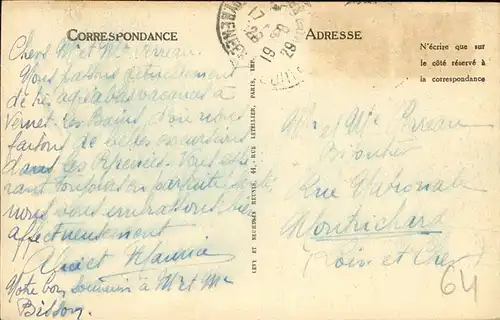 CORRESPONDANCE
Chers Mr et Mme Perreau.
Nous passons actuellement
de très agréables vacances à
Vernet-les Bains, d'où nous
faisons de belles excursions
dans les Pyrénées. Vous espé
rant toujours en parfaite santé,
nous vous embrassons bien
affectueusement
et Maurice
Notre bon souvenir à Mr et Me
Bisson.
LEVY ET NEURDEIN RÉUNIS, 44, RUE LETELLIER, PARIS, IMP.
17
29
19
29
ADRESSE
N'écrire que sur
le côté réservé à
la correspondance
Mr et Me Perreau
Rue Nationale
Montrichard
Loir et Cher
64